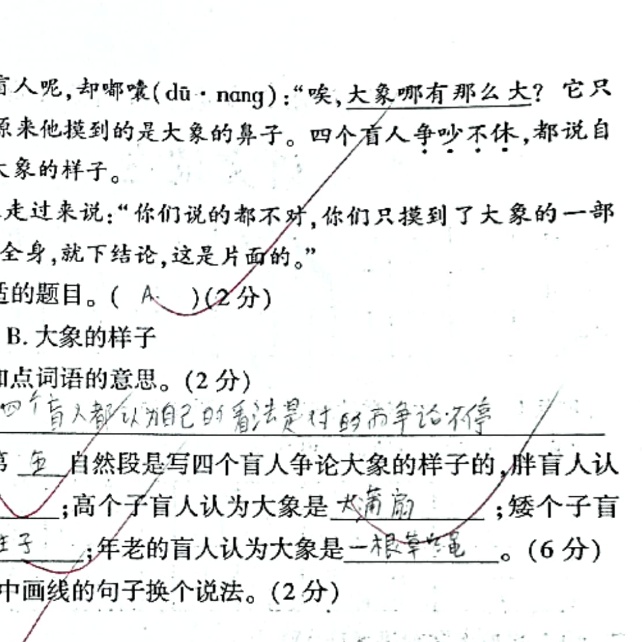 盲人呢,却嘟囔(dū·nang):“唉,大象哪有那么大?它只
原来他摸到的是大象的鼻子。四个盲人争吵不休,都说自
大象的样子。
走过来说:“你们说的都不对,你们只摸到了大象的一部
全身,就下结论,这是片面的。”
适的题目。( A )(2分)
B. 大象的样子
加点词语的意思。(2分)
四个盲人都认为自己的看法是对的而争论不停
第 五 自然段是写四个盲人争论大象的样子的,胖盲人认
;高个子盲人认为大象是 大蒲扇 ;矮个子盲
柱子 ;年老的盲人认为大象是一根草绳 。(6分)
中画线的句子换个说法。(2分)